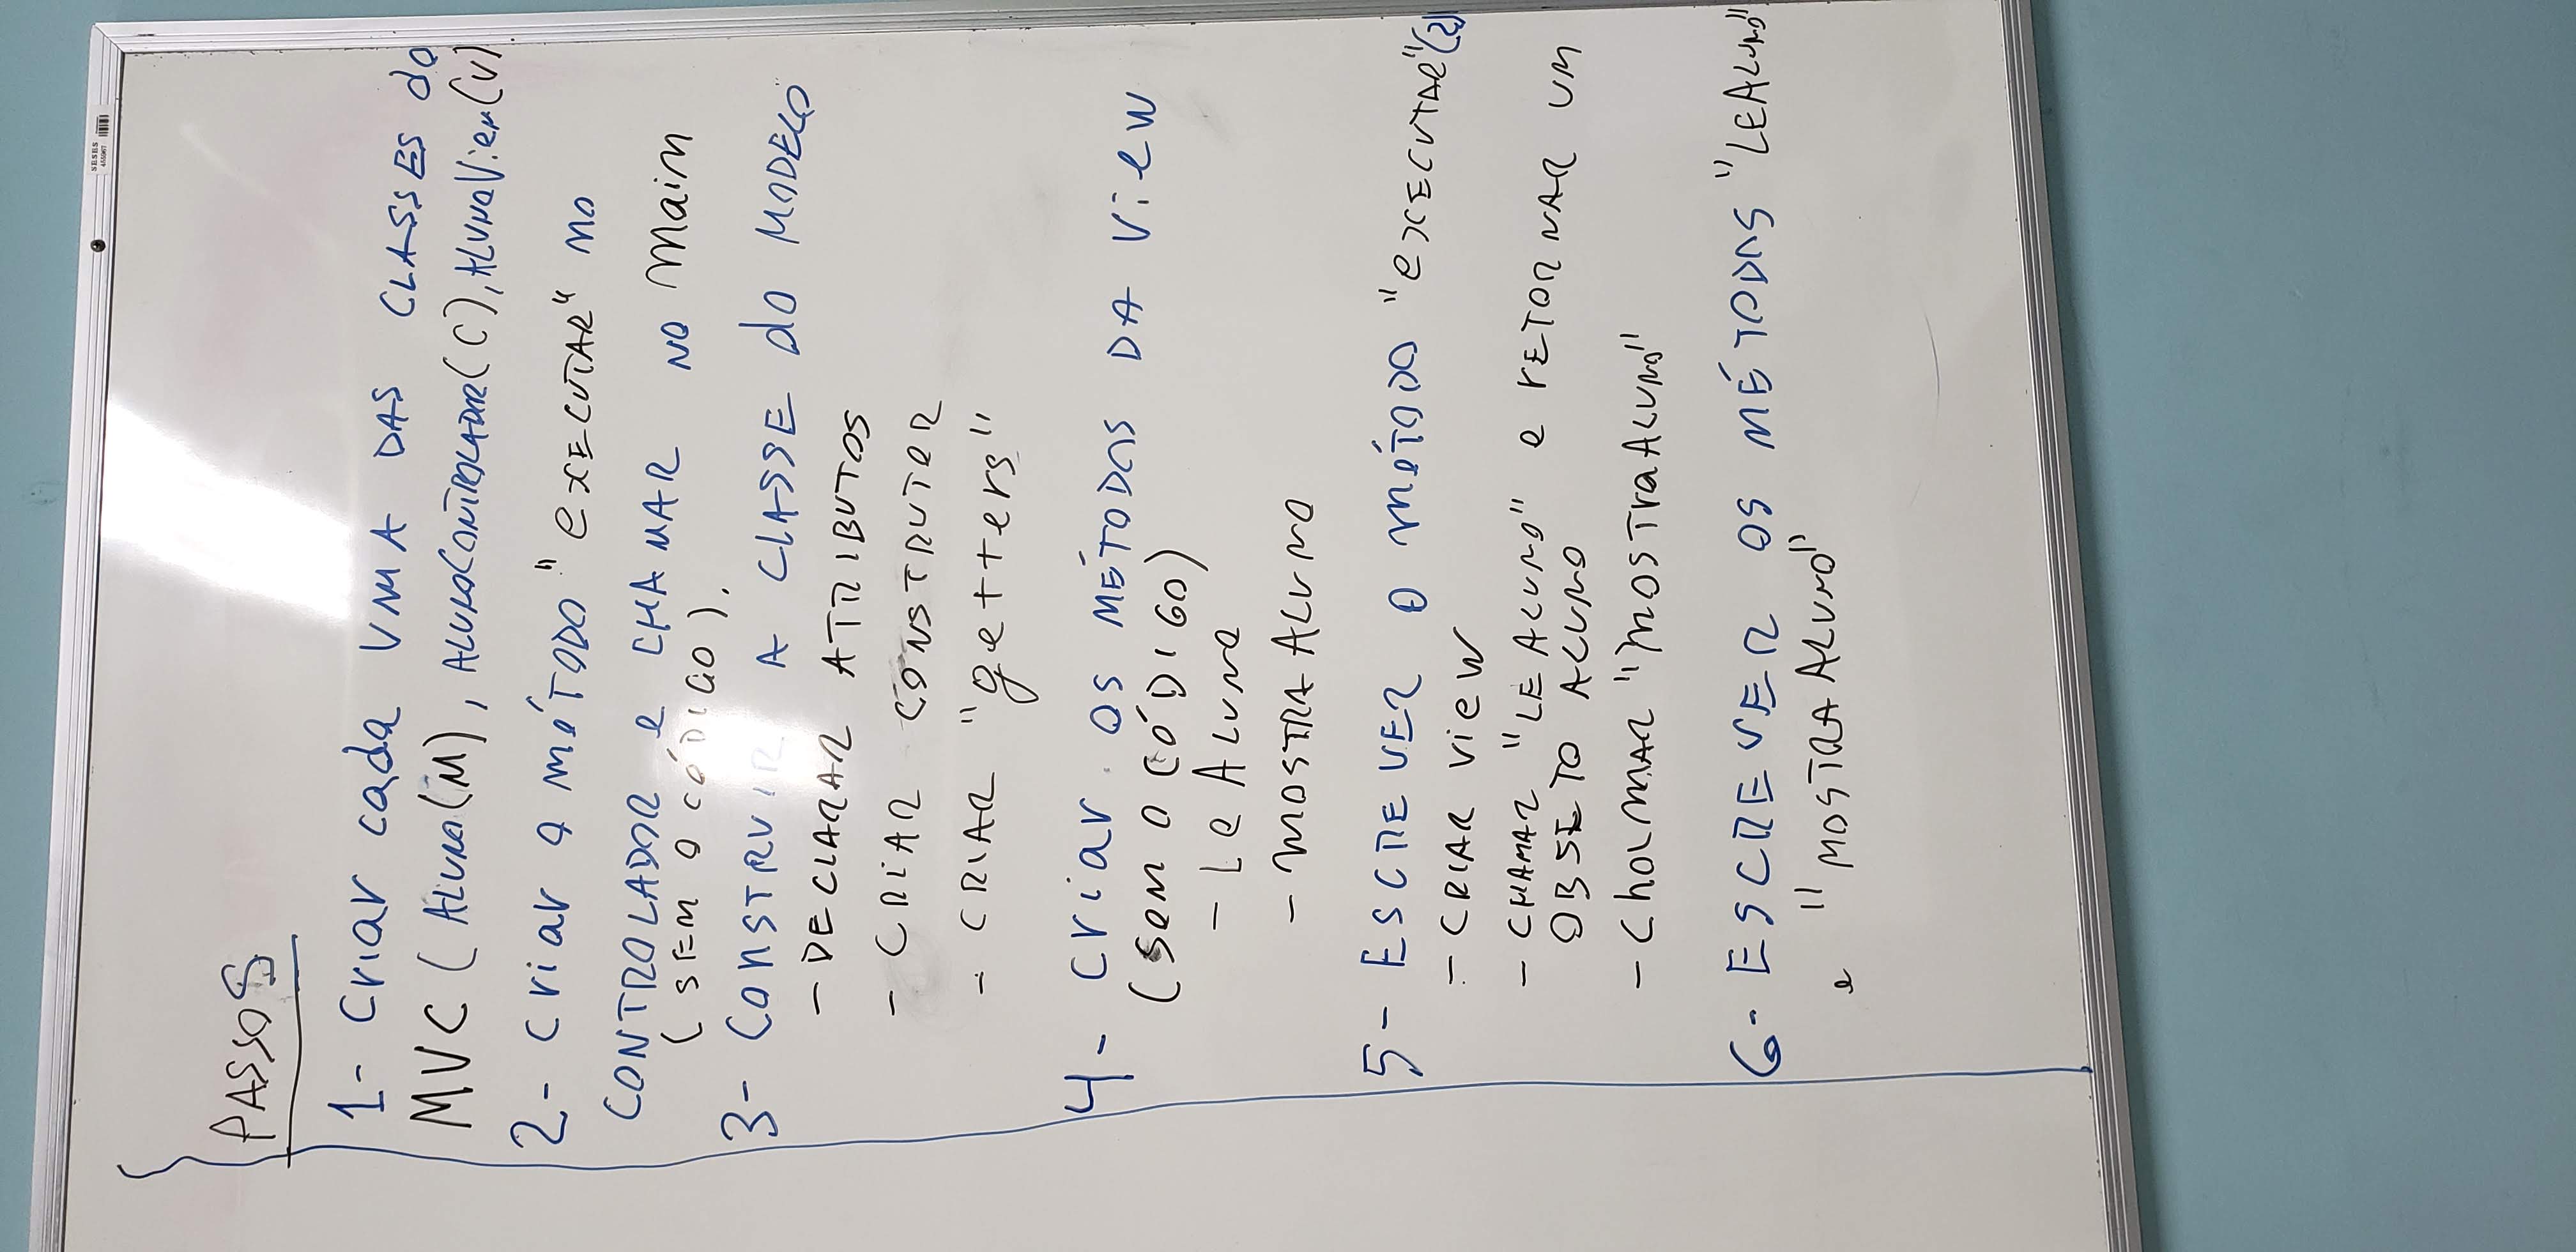 SESES
455967
PASSOS
1- Criar cada UMA DAS CLASSES do
MVC (ALUNO(M), ALUNOCONTROLADOR(C), ALUNOView(V)
2- Criar o MÉTODO "EXECUTAR" NO
CONTROLADOR e CHAMAR NO Main
(SEM O CÓDIGO).
3- CONSTRUIR A CLASSE do MODELO
- DECLARAR ATRIBUTOS
- CRIAR CONSTRUTOR
- CRIAR "getters"
4- Criar OS MÉTODOS DA View
(SEM O CÓDIGO)
- Le ALUNO
- MOSTRA ALUNO
5- ESCREVER O MÉTODO "EXECUTAR"(2)
- CRIAR View
- CHAMAR "LE ALUNO" e RETORNAR UM
OBJETO ALUNO
- ChaMAR "MOSTraALUNO"
6- ESCREVER OS MÉTODOS "LEALUNO"
e "MOSTRA ALUNO"